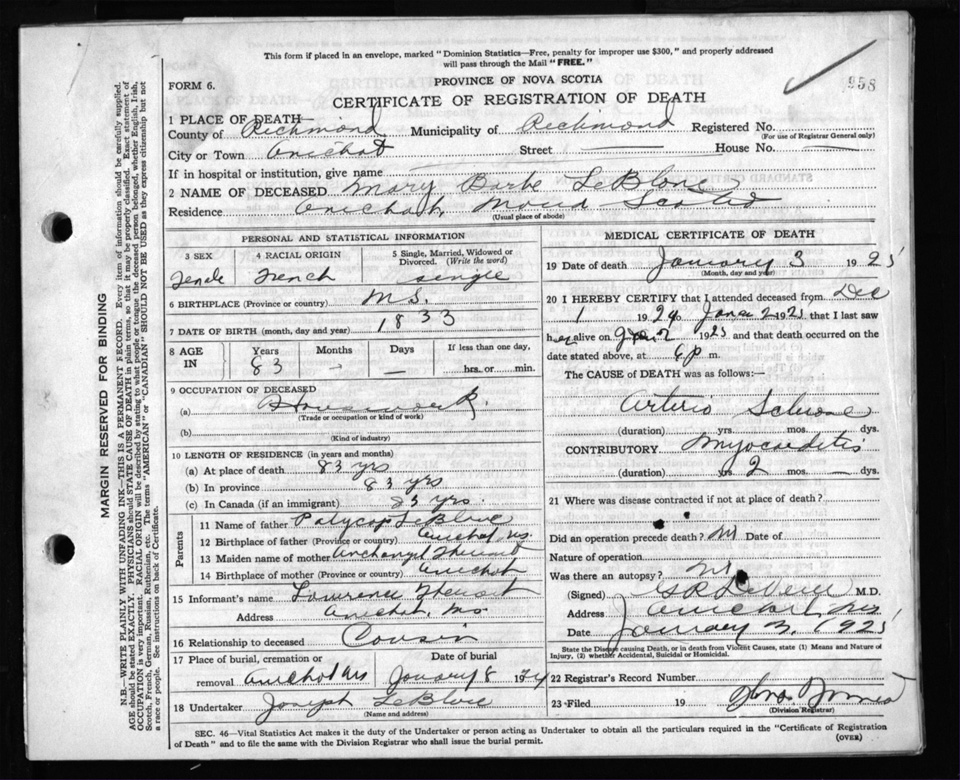 This form if placed in an envelope, marked "Dominion Statistics—Free, penalty for improper use $300," and properly addressed
will pass through the Mail "FREE."
958
FORM 6.
PROVINCE OF NOVA SCOTIA
CERTIFICATE OF REGISTRATION OF DEATH
1 PLACE OF DEATH—
County of Richmond Municipality of Richmond Registered No.
(For use of Registrar General only)
City or Town Arichat Street House No.
If in hospital or institution, give name
2 NAME OF DECEASED Mary Barbe LeBlanc
Residence Arichat, Nova Scotia
(Usual place of abode)
PERSONAL AND STATISTICAL INFORMATION
3 SEX 4 RACIAL ORIGIN 5 Single, Married, Widowed or Divorced. (Write the word)
Female French single
6 BIRTHPLACE (Province or country) N.S.
7 DATE OF BIRTH (month, day and year) 1833
8 AGE IN Years Months Days If less than one day,
83 — — hrs. or min.
9 OCCUPATION OF DECEASED
(a) Housework
(Trade or occupation or kind of work)
(b)
(Kind of industry)
10 LENGTH OF RESIDENCE (in years and months)
(a) At place of death 83 yrs
(b) In province 83 yrs
(c) In Canada (if an immigrant) 83 yrs.
Parents
11 Name of father LeBlanc
12 Birthplace of father (Province or country) Arichat, NS.
13 Maiden name of mother
14 Birthplace of mother (Province or country) Arichat
15 Informant's name Lawrence
Address Arichat, NS
16 Relationship to deceased Cousin
17 Place of burial, cremation or removal Arichat NS Date of burial January 8 1924
18 Undertaker Joseph LeBlanc
(Name and address)
MEDICAL CERTIFICATE OF DEATH
19 Date of death January 3 1925
(Month, day and year)
20 I HEREBY CERTIFY that I attended deceased from Dec
1 1924 Jan 2 1925 that I last saw
her alive on Jan 2 1925 and that death occurred on the
date stated above, at 6 p m.
The CAUSE of DEATH was as follows:—
Arterio Sclerosis
(duration) yrs. mos. dys.
CONTRIBUTORY Myocarditis
(duration) yrs 2 mos. dys.
21 Where was disease contracted if not at place of death?
Did an operation precede death? No Date of
Nature of operation
Was there an autopsy? No
(Signed) M.D.
Address Arichat NS
Date January 3, 1925
State the Disease causing Death, or in death from Violent Causes, state (1) Means and Nature of
Injury, (2) whether Accidental, Suicidal or Homicidal.
22 Registrar's Record Number
23—Filed 19
(Division Registrar)
SEC. 46—Vital Statistics Act makes it the duty of the Undertaker or person acting as Undertaker to obtain all the particulars required in the "Certificate of Registration
of Death" and to file the same with the Division Registrar who shall issue the burial permit.
(OVER)
MARGIN RESERVED FOR BINDING
N.B.—WRITE PLAINLY WITH UNFADING INK—THIS IS A PERMANENT RECORD. Every item of information should be carefully supplied.
AGE should be stated EXACTLY. PHYSICIANS should STATE CAUSE OF DEATH in plain terms, so that it may be properly classified. Exact statement of
OCCUPATION is very important. RACIAL ORIGIN will be described by stating to what people or tongue the deceased person belonged, whether English, Irish,
Scotch, French, German, Russian, Ruthenian, etc. The terms "AMERICAN" or "CANADIAN" SHOULD NOT BE USED as they express citizenship but not
a race or people. See instructions on back of Certificate.